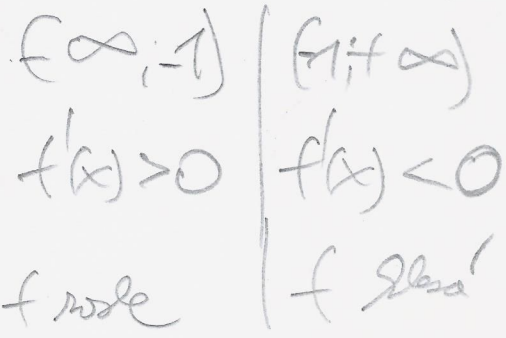 (-∞;-1) | (-1;+∞)
f'(x)>0 | f'(x)<0
f roste | f klesá